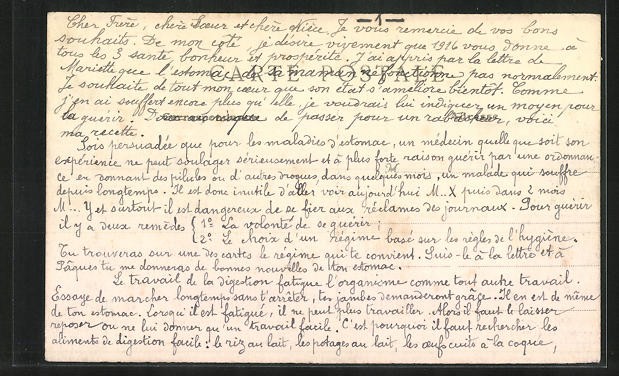 —1—
Cher Frère, chère Sœur et chère Nièce, Je vous remercie de vos bons
souhaits. De mon côté, je désire vivement que 1916 vous donne à
tous les 3 santé bonheur et prospérité. J'ai appris par la lettre de
Mariette que l'estomac de sa maman ne fonctionne pas normalement.
CARTE POSTALE
Je souhaite de tout mon cœur que son état s'améliore bientôt. Comme
j'en ai souffert encore plus qu'elle, je voudrais lui indiquer un moyen pour
la guérir. de passer pour un voici
ma recette.
Sois persuadée que pour les maladies d'estomac, un médecin quelle que soit son
expérience ne peut soulager sérieusement et à plus forte raison guérir par une ordonnan-
ce en donnant des pilules ou d'autres drogues, dans quelques mois, un malade qui souffre
depuis longtemps. Il est donc inutile d'aller voir aujourd'hui M..X puis dans 2 mois
M... Y et surtout il est dangereux de se fier aux réclames des journaux. Pour guérir
il y a deux remèdes { 1º La volonté de se guérir ;
2º Le choix d'un régime basé sur les règles de l'hygiène.
Tu trouveras sur une des cartes le régime qui te convient. Suis-le à la lettre et à
Pâques tu me donneras de bonnes nouvelles de ton estomac.
Le travail de la digestion fatigue l'organisme comme tout autre travail.
Essaye de marcher longtemps sans t'arrêter, tes jambes demanderont grâce. Il en est de même
de ton estomac. Lorsqu'il est fatigué, il ne peut plus travailler. Alors il faut le laisser
reposer ou ne lui donner qu'un travail facile. C'est pourquoi il faut rechercher les
aliments de digestion facile : le riz au lait, les potages au lait, les œufs cuits à la coque,